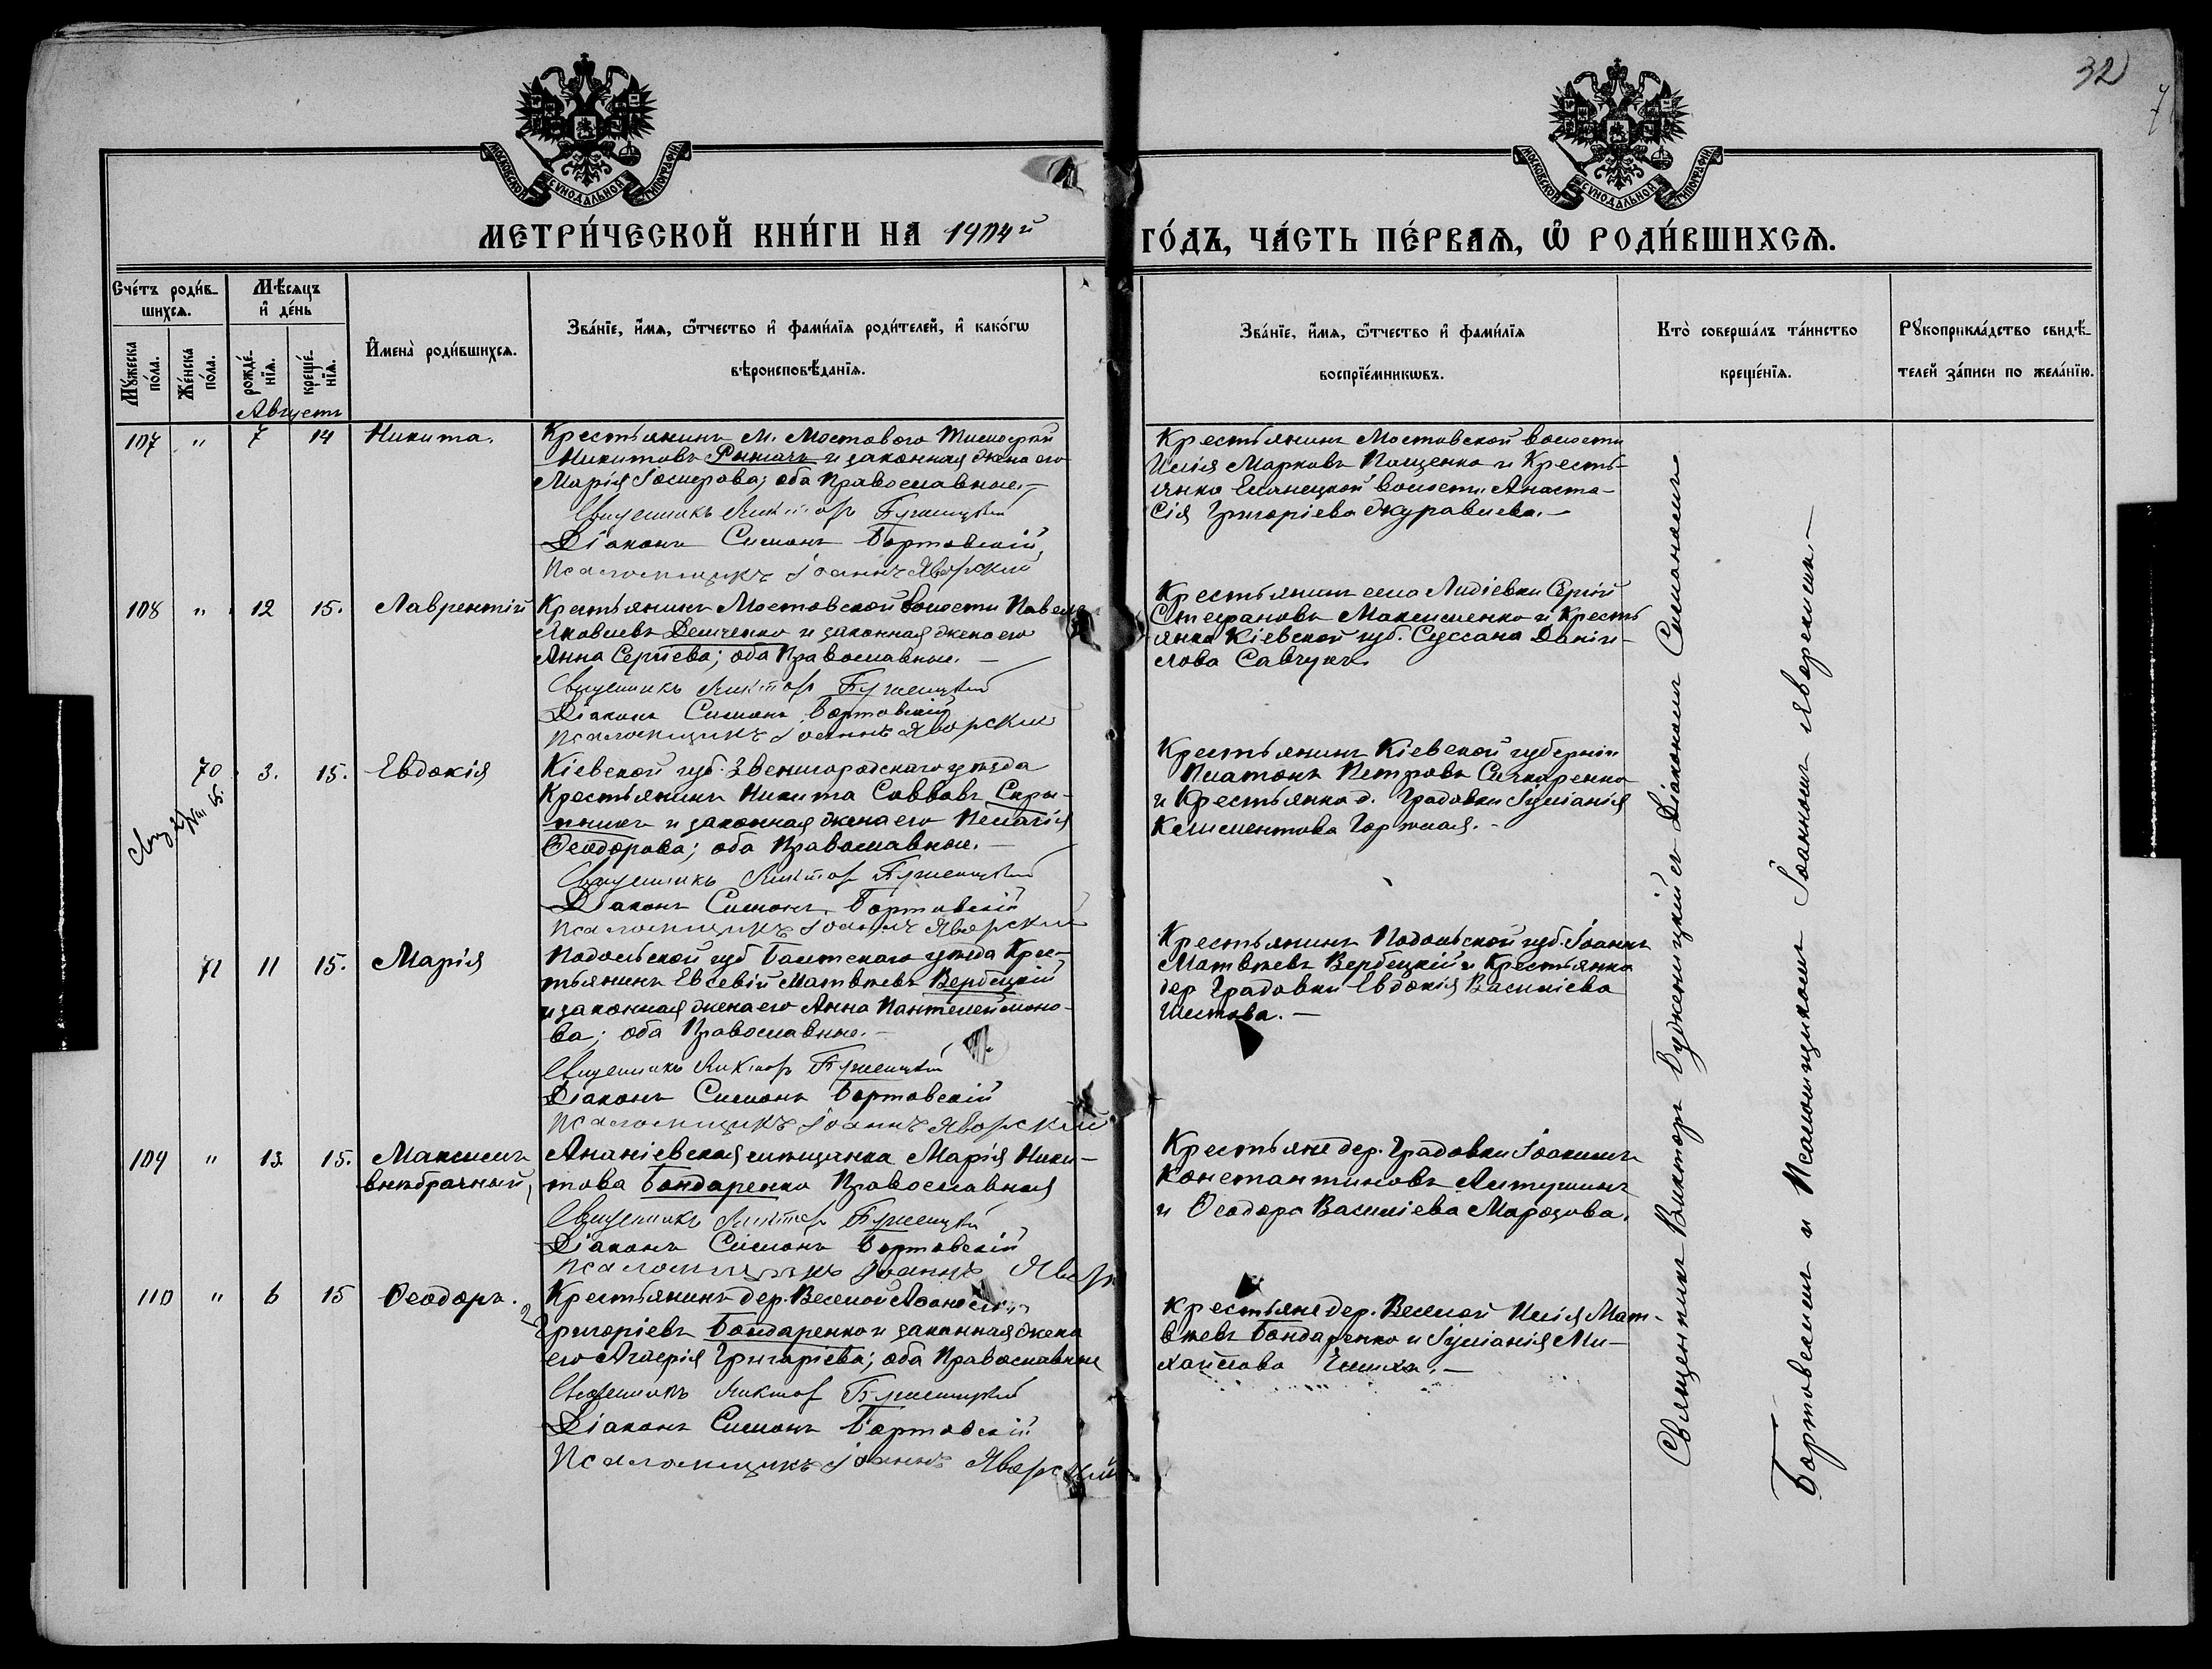 32
МОСКОВСКОЙ СѴНОДАЛЬНОЙ ТИПОГРАФІИ
МОСКОВСКОЙ СѴНОДАЛЬНОЙ ТИПОГРАФІИ
МЕТРИ́ЧЕСКОЙ КНИ́ГИ НА 1904й
ГО́ДЪ, ЧА́СТЬ ПЕ́РВАѦ, Ѡ҆ РОДИ́ВШИХСѦ.
Сче́тъ роди́в-
шихсѧ.
Мꙋ́жеска по́ла.
Же́нска по́ла.
Мѣ́сѧцъ
и҆ де́нь
рожде́-
нїѧ.
креще́-
нїѧ.
И҆мена̀ роди́вшихсѧ.
Зва́нїе, и҆́мѧ, ѻ҆́тчество и҆ фами́лїѧ роди́телей, и҆ како́гѡ
вѣроисповѣ́данїѧ.
Зва́нїе, и҆́мѧ, ѻ҆́тчество и҆ фами́лїѧ
воспрїе́мникѡвъ.
Кто̀ соверша́лъ та́инство
креще́нїѧ.
Рꙋкоприкла́дство свидѣ́-
телей за́писи по жела́нїю.
Августъ
107 " 7 14 Никита.
Крестьянинъ м. Мостового Тимофей
Никитовъ и законная жена его
Марія Іосифова; оба Православные.—
Священникъ Виктор Буженицкій
Діаконъ Симонъ Бортовскій
Псаломщикъ Іоаннъ Яворскій
Крестьянинъ Мостовской волости
Илія Марковъ Пащенко и Кресть-
янка Еланецкой волости Анаста-
сія Григоріева Журавлева.—
108 " 12 15. Лаврентій
Крестьянинъ Мостовской волости Павелъ
Яковлевъ Демченко и законная жена его
Анна Сергіева; оба Православные.—
Священникъ Виктор Буженицкій
Діаконъ Симонъ Бортовскій
Псаломщикъ Іоаннъ Яворскій
Крестьянинъ села Лидіевки Сергій
Стефановъ Максименко и Кресть
янка Кіевской губ. Суссана Даніи-
лова Савчукъ.
70 3. 15. Евдокія
Кіевской губ. Звенигородскаго уѣзда
Крестьянинъ Никита Саввовъ Скры-
пникъ и законная жена его Пелагія
Ѳеодорова; оба Православные.—
Священникъ Виктор Буженицкій
Діаконъ Симонъ Бортовскій
Псаломщикъ Іоаннъ Яворскій
Крестьянинъ Кіевской губерніи
Платонъ Петровъ Сичкаренко
и Крестьянка д. Градовки Іуліанія
Климентова.—
71 11 15. Марія
Подольской губ Балтскаго уѣзда Крес-
тьянинъ Евсевій Матвѣевъ Вербецкій
и законная жена его Анна Пантелеймоно-
ва; оба Православные.—
Священникъ Виктор Буженицкій
Діаконъ Симонъ Бортовскій
Псаломщикъ Іоаннъ Яворскій
Крестьянинъ Подольской губ. Іоаннъ
Матвѣевъ Вербецкій и Крестьянка
дер Градовки Евдокія Василіева
Шестова.—
109 " 13. 15. Максимъ
внѣбрачный,
Ананіевская мѣщанка Марія Ники-
това Бондаренко Православная
Священникъ Виктор Буженицкій
Діаконъ Симонъ Бортовскій
Псаломщикъ Іоаннъ Явор
Крестьяне дер. Градовки Іоакимъ
Константиновъ
и Ѳеодора Василіева Марозова.
110 " 6 15 Ѳеодоръ.
Крестьянинъ дер. Веселой
Григоріевъ Бондаренко и законная жена
его Григоріева; оба Православные
Священникъ Виктор Буженицкій
Діаконъ Симонъ Бортовскій
Псаломщикъ Іоаннъ Яворскій
Крестьяне дер. Веселой Илія Мат-
вѣевъ Бондаренко и Іуліанія Ми-
хайлова
Священникъ Викторъ Буженицкій съ Діакономъ Симономъ
Бортовскимъ и Псаломщикомъ Іоанномъ Яворскимъ.—